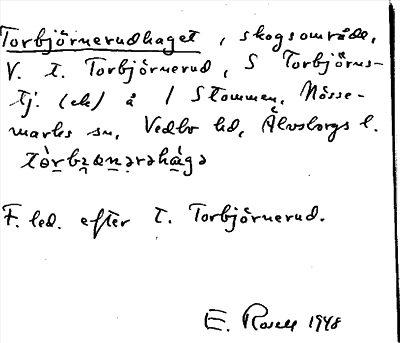 Torbjörnerudhaget, skogsområde,
V. t. Torbjörnerud, S Torbjörns-
tj. (ek) å 1 Stommen, Nösse-
marks sn, Vedbo hd, Älvsborgs l.
F. led. efter t. Torbjörnerud.
E. Rosell 1948